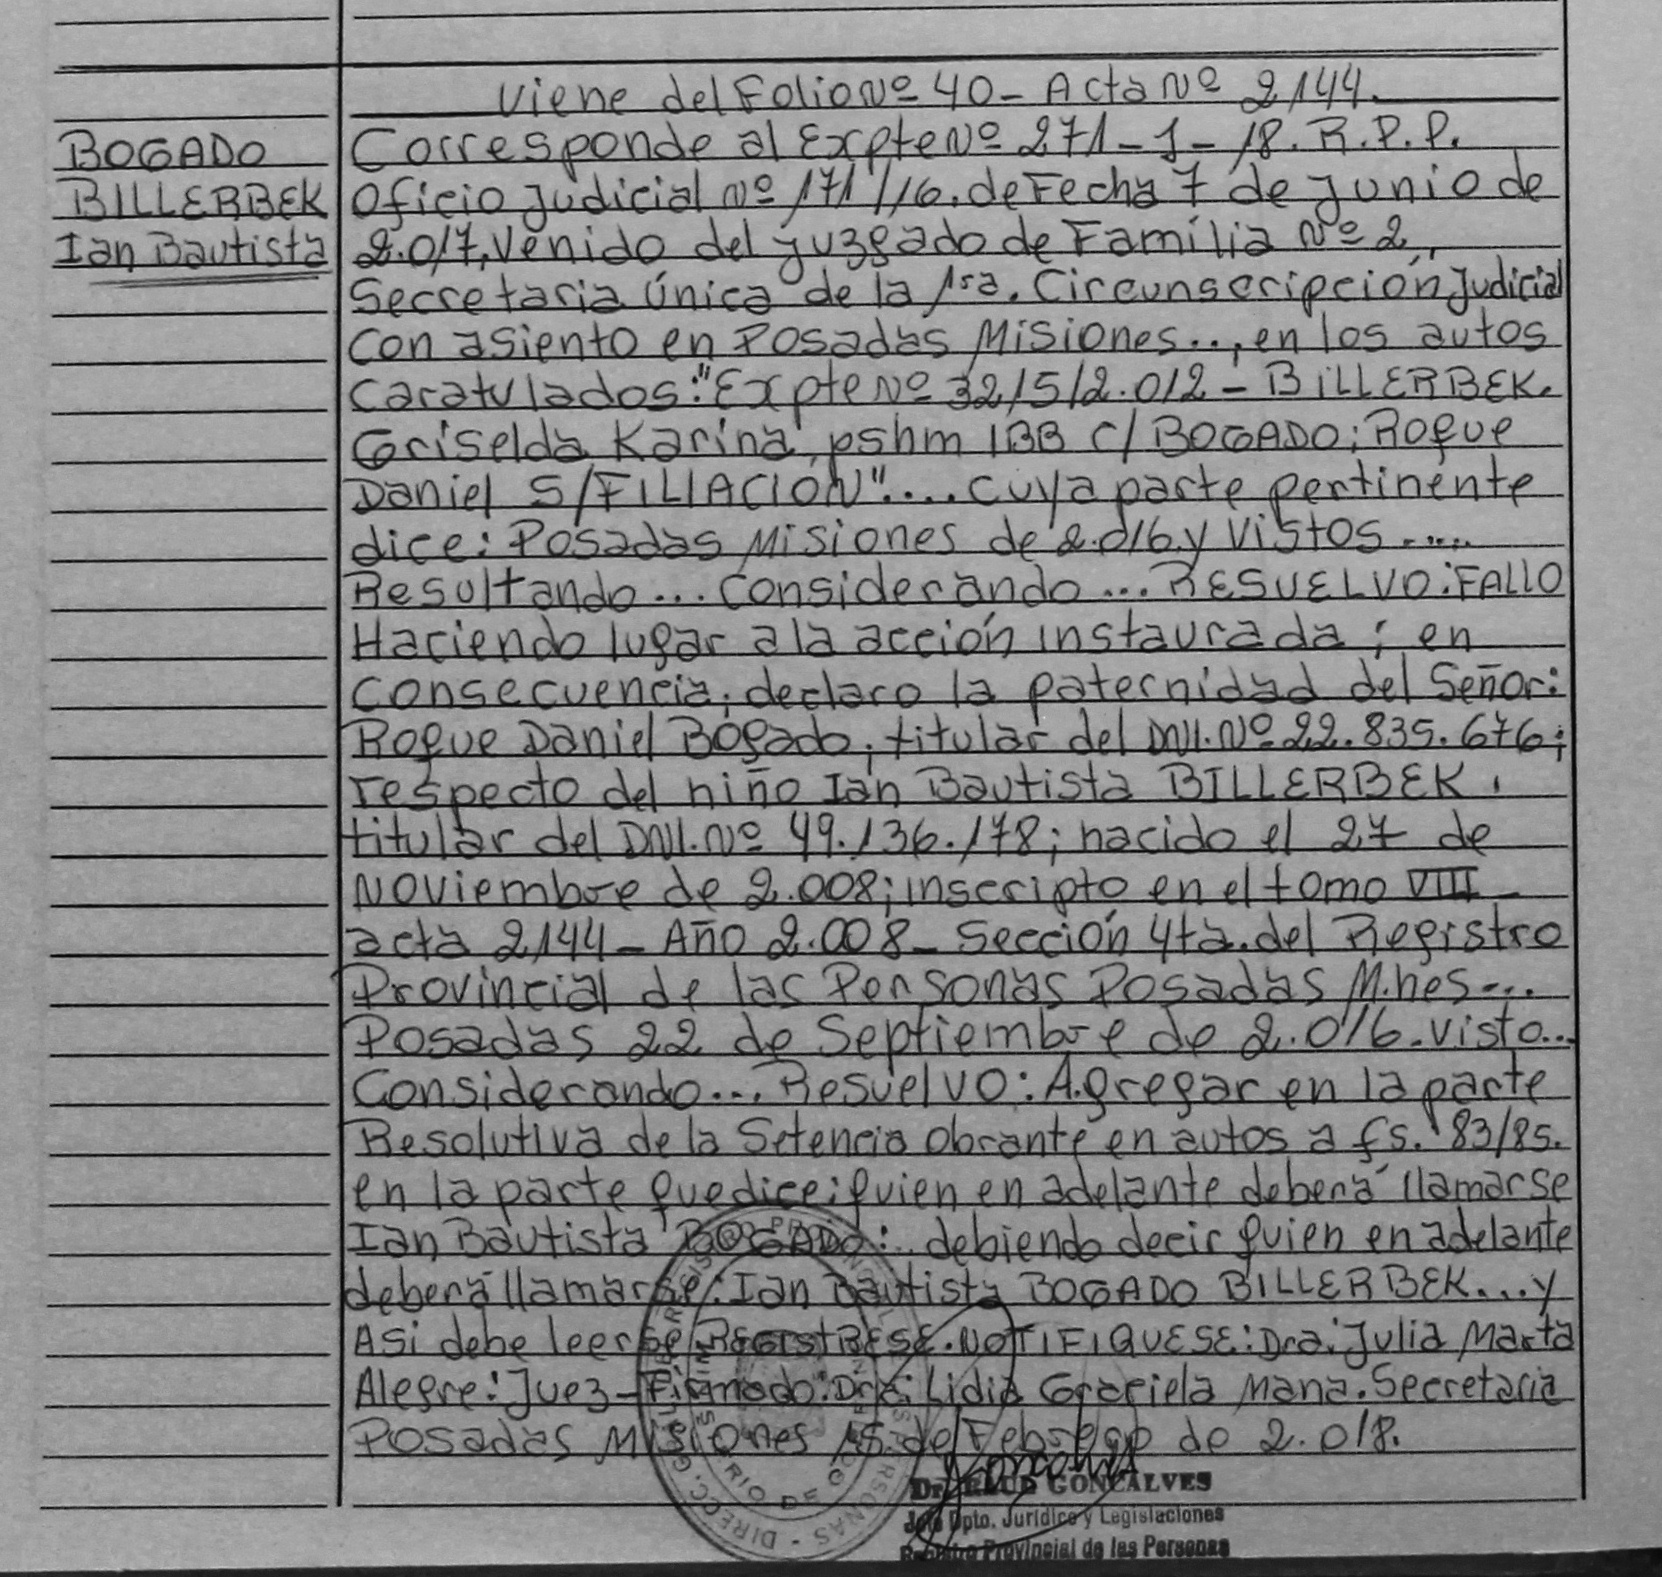 Viene del Folio Nº 40 - Acta Nº 2144.
BOGADO
BILLERBEK
Ian Bautista
Corresponde al Expte Nº 271-J-18. R.P.P.
Oficio Judicial Nº 171/16. de Fecha 7 de Junio de
2.017, Venido del Juzgado de Familia Nº 2,
Secretaria Única de la 1ra. Circunscripción Judicial
con asiento en Posadas Misiones..., en los autos
Caratulados: "Expte Nº 3215/2.012 - BILLERBEK.
Griselda Karina, pshm IBB c/ BOGADO; Roque
Daniel S/FILIACION".... cuya parte pertinente
dice: Posadas Misiones de 2.016. y Vistos .....
Resultando... Considerando... RESUELVO: FALLO
Haciendo lugar a la acción instaurada; en
Consecuencia; declaro la paternidad del Señor:
Roque Daniel Bogado; titular del DNI. Nº 22.835.676;
respecto del niño Ian Bautista BILLERBEK,
titular del DNI. Nº 49.136.178; nacido el 27 de
Noviembre de 2.008; inscripto en el tomo VIII
acta 2144 - Año 2.008 - Sección 4ta. del Registro
Provincial de las Personas Posadas M.nes...
Posadas 22 de Septiembre de 2.016. Visto...
Considerando... Resuelvo: Agregar en la parte
Resolutiva de la Setencia obrante en autos a fs. 83/85.
en la parte que dice: quien en adelante deberá llamarse
Ian Bautista BOGADO: debiendo decir quien en adelante
deberá llamarse: Ian Bautista BOGADO BILLERBEK....y
Asi debe leerse REGISTRESE. NOTIFIQUESE: Dra. Julia Marta
Alegre: Juez - Firmado: Dra: Lidia Graciela Mana. Secretaria
Posadas Misiones 15 de Febrero de 2.018.
GONCALVES
Jefe Dpto. Jurídico y Legislaciones
Registro Provincial de las Personas